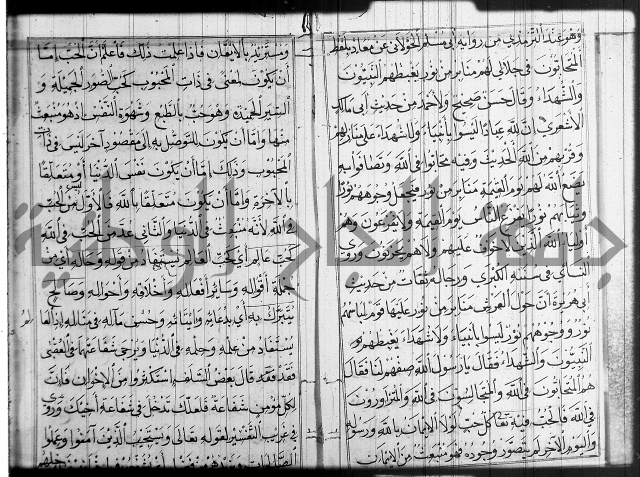 وهو عند الترمذي من رواية أبي مسلم الخولاني عن معاذ بلفظ
المتحابون في جلالي لهم منابر من نور يغبطهم النبيون
والشهداء وقال حسن صحيح ولأحمد من حديث أبي مالك
الأشعري إن لله عبادا ليسوا بأنبياء ولا شهداء على منازلهم
وقربهم من الله الحديث وفيه تحابوا في الله وتصافوا فيه
يضع الله لهم يوم القيمة منابر من نور فيجعل وجوههم نورا
وثيابهم نورا يفزع الناس يوم القيمة ولا يفزعون وهم
أولياء الله الذين لا خوف عليهم ولا هم يحزنون وروى
النسائي في سننه الكبرى ورجاله ثقات من حديث
أبي هريرة أن حول العرش منابر من نور عليها قوم لباسهم
نور ووجوههم نور ليسوا بأنبياء ولا شهداء يغبطهم
النبيون والشهداء فقال يا رسول الله صفهم لنا فقال
هم المتحابون في الله والمتجالسون في الله والمتزاورون
في الله فالحب فيه تعالى حب لولا الإيمان بالله ورسوله
واليوم الآخر لم يتصور وجوده فهو منبعث من الإيمان
ويتزيد بالإيقان فإذا علمت ذلك فاعلم أن الحب إما
أن يكون لمعنى في ذات المحبوب كحب الصور الجميلة و
السير الحميدة وهو حب بالطبع وشهوة النفس إذ هو منبعث
منها وإما أن يكون للتوصل به إلى مقصود آخر ليس في ذات
المحبوب وذلك إما أن يكون نفس الدنيا أو متعلقا
بالآخرة وإما أن يكون متعلقا بالله فالأول ليس من الحب
في الله لأنه منبعث في الدنيا والثاني عد من الحب في الله
كحب عالم أي كحب العالم ليستفيد من قوله وحاله أي من
جملة أقواله وسائر أفعاله وأخلاقه وأحواله وصالح
يتبرك به أي بدعائه وحسن مآله في مثاله إذ العلم
يستفاد من علمه وحلمه في الدنيا ويرجى شفاعته في العقبى
فقد قال بعض السلف استكثروا من الإخوان فإن
لكل مؤمن شفاعة فلعلك تدخل في شفاعة أخيك وروي
في غريب التفسير لقوله تعالى ويستجيب الذين آمنوا وعملوا
الصالحات ويزيدهم من فضله
جامعة النجاح الوطنية